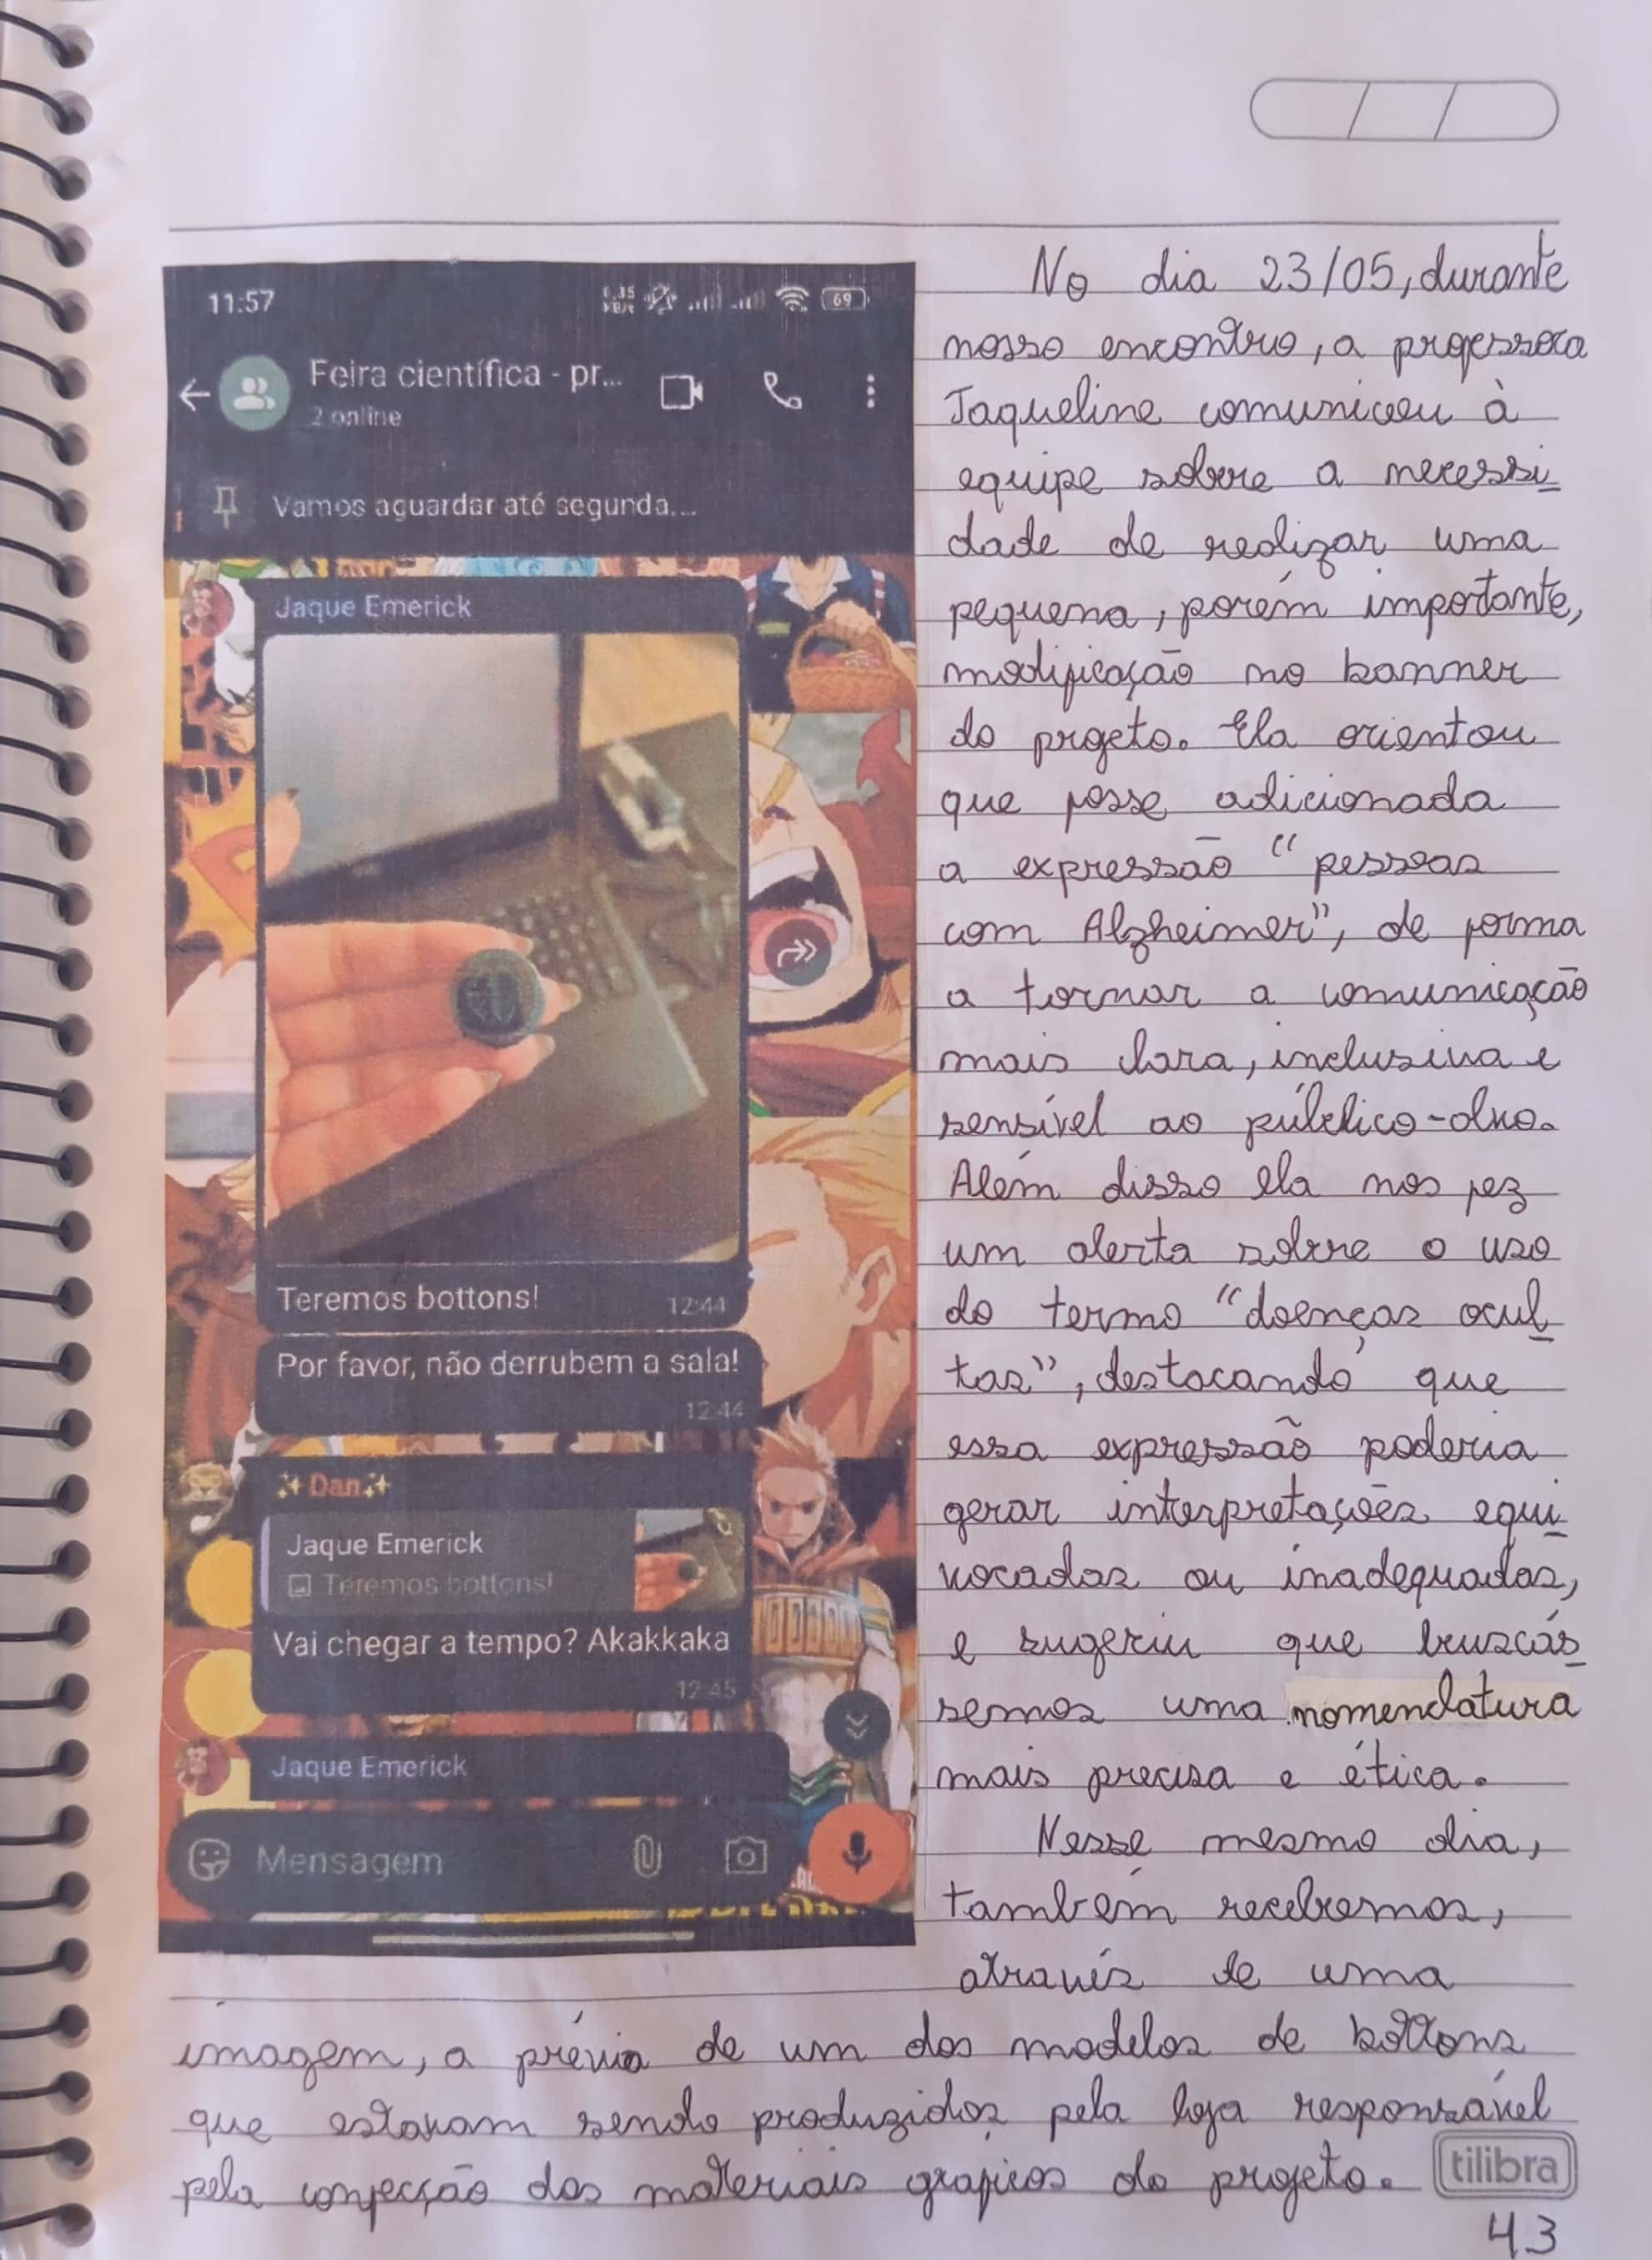 11:57
69
Feira científica - pr...
2 online
Vamos aguardar até segunda...
Jaque Emerick
Teremos bottons!
12:44
Por favor, não derrubem a sala!
12:44
✨Dan✨
Jaque Emerick
Teremos bottons!
Vai chegar a tempo? Akakkaka
12:45
Jaque Emerick
Mensagem
No dia 23/05, durante
nosso encontro, a professora
Jaqueline comunicou à
equipe sobre a necessi
dade de realizar uma
pequena, porém importante,
modificação no banner
do projeto. Ela orientou
que fosse adicionada
a expressão "pessoas
com Alzheimer", de forma
a tornar a comunicação
mais clara, inclusiva e
sensível ao público-alvo.
Além disso ela nos fez
um alerta sobre o uso
do termo "doenças ocul
tas", destacando que
essa expressão poderia
gerar interpretações equi
vocadas ou inadequadas,
e sugeriu que buscás
semos uma nomenclatura
mais precisa e ética.
Nesse mesmo dia,
também recebemos,
através de uma
imagem, a prévia de um dos modelos de bottons
que estavam sendo produzidos pela loja responsável
pela confecção dos materiais graficos do projeto.
tilibra
43